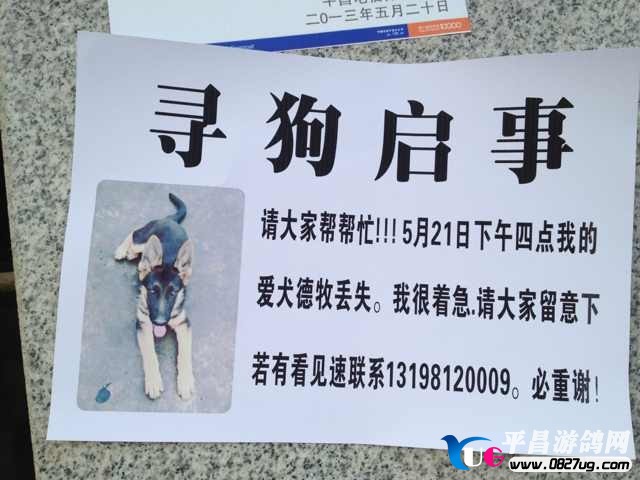 二〇一三年五月二十日
10000
寻狗启事
请大家帮帮忙!!!5月21日下午四点我的
爱犬德牧丢失。我很着急.请大家留意下
若有看见速联系13198120009。必重谢!
YUG 平昌游鸽网
www.0827ug.com